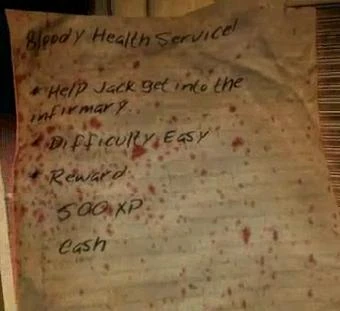 Bloody Health Service!
* Help Jack get into the
infirmary.
* Difficulty Easy
* Reward
500 XP
Cash